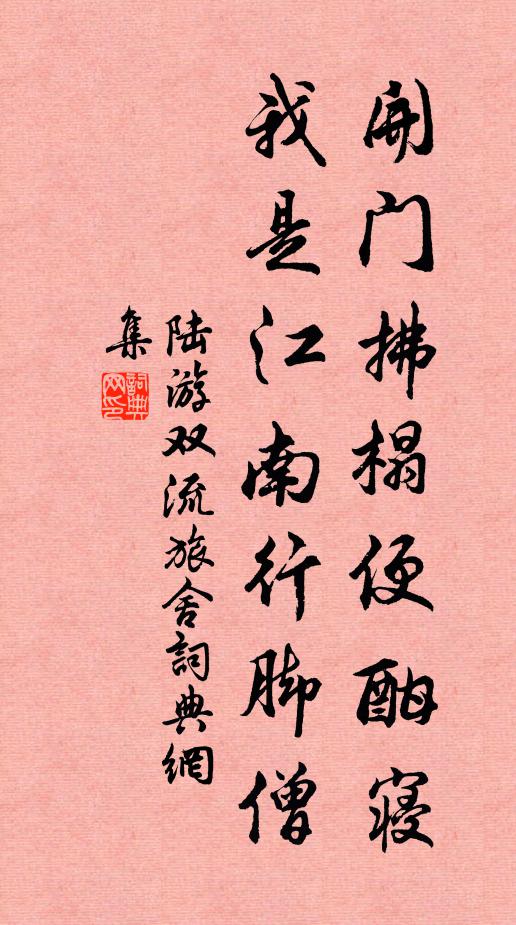 開门拂榻便酣寢
我是江南行脚僧
陆游双流旅舍詞典網
集
詞典
网印